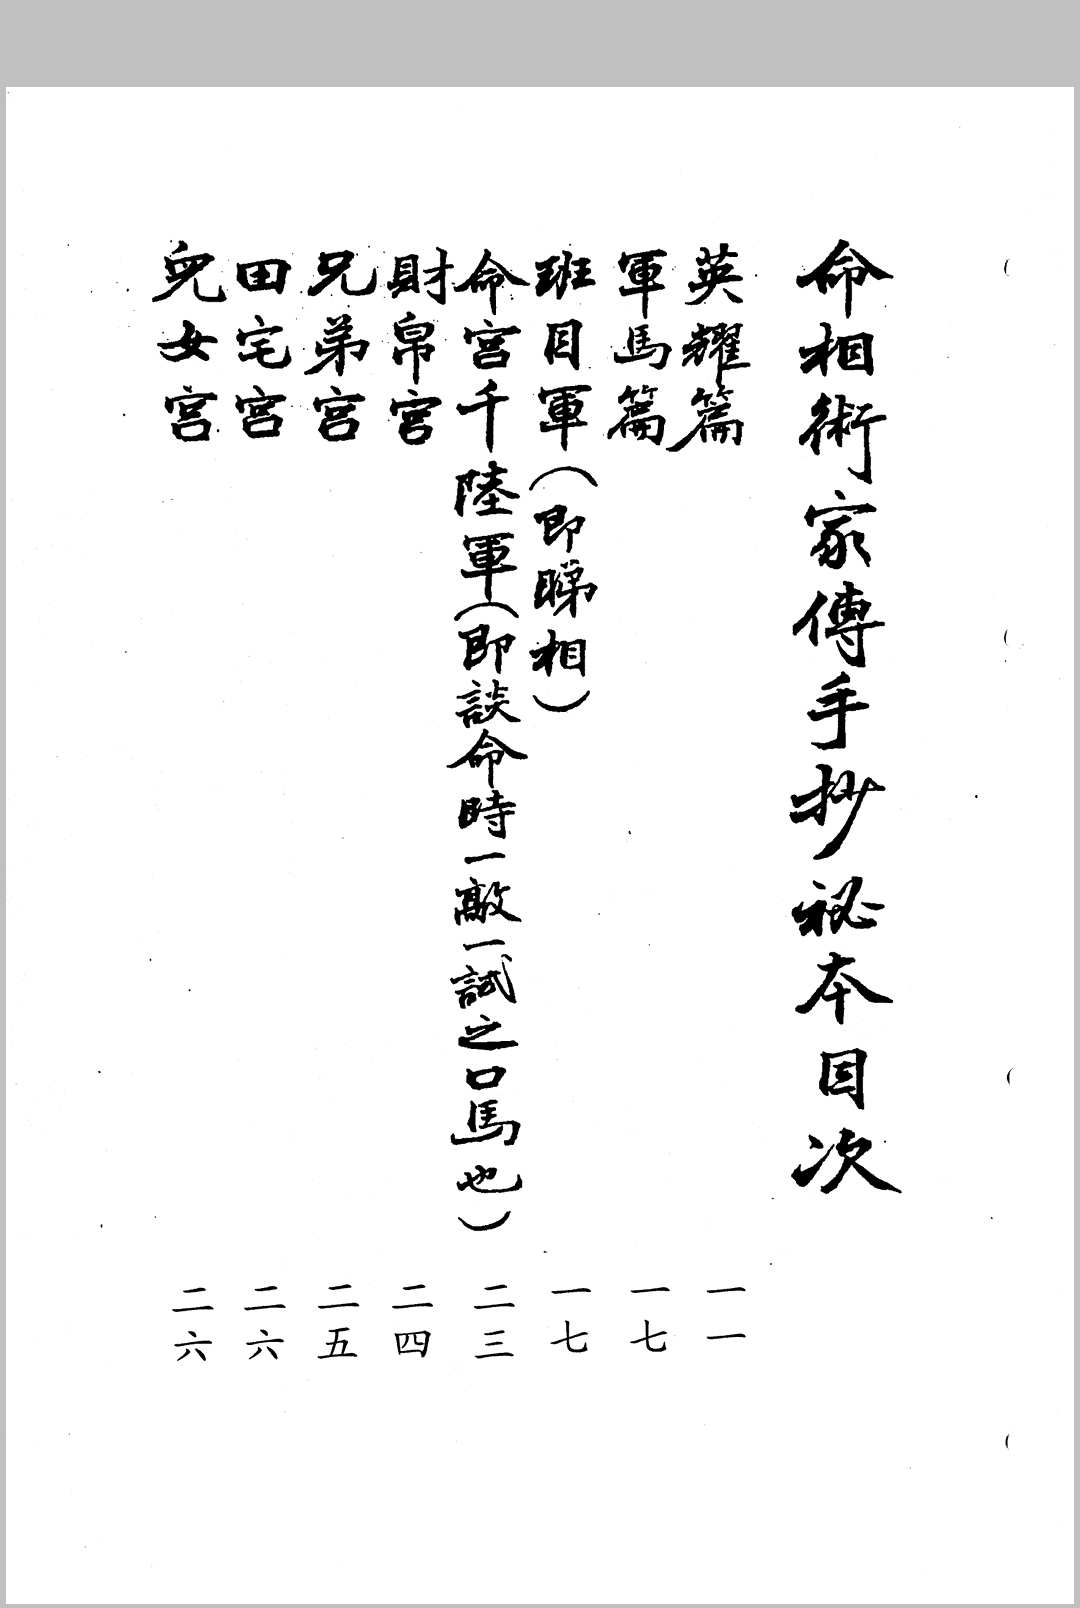 命相術家傳手抄祕本目次
英耀篇 一一
軍馬篇 一七
班目軍（即睇相） 一七
命宮千陸軍（即談命時一敲一試之口馬也） 二三
財帛宮 二四
兄弟宮 二五
田宅宮 二六
兒女宮 二六